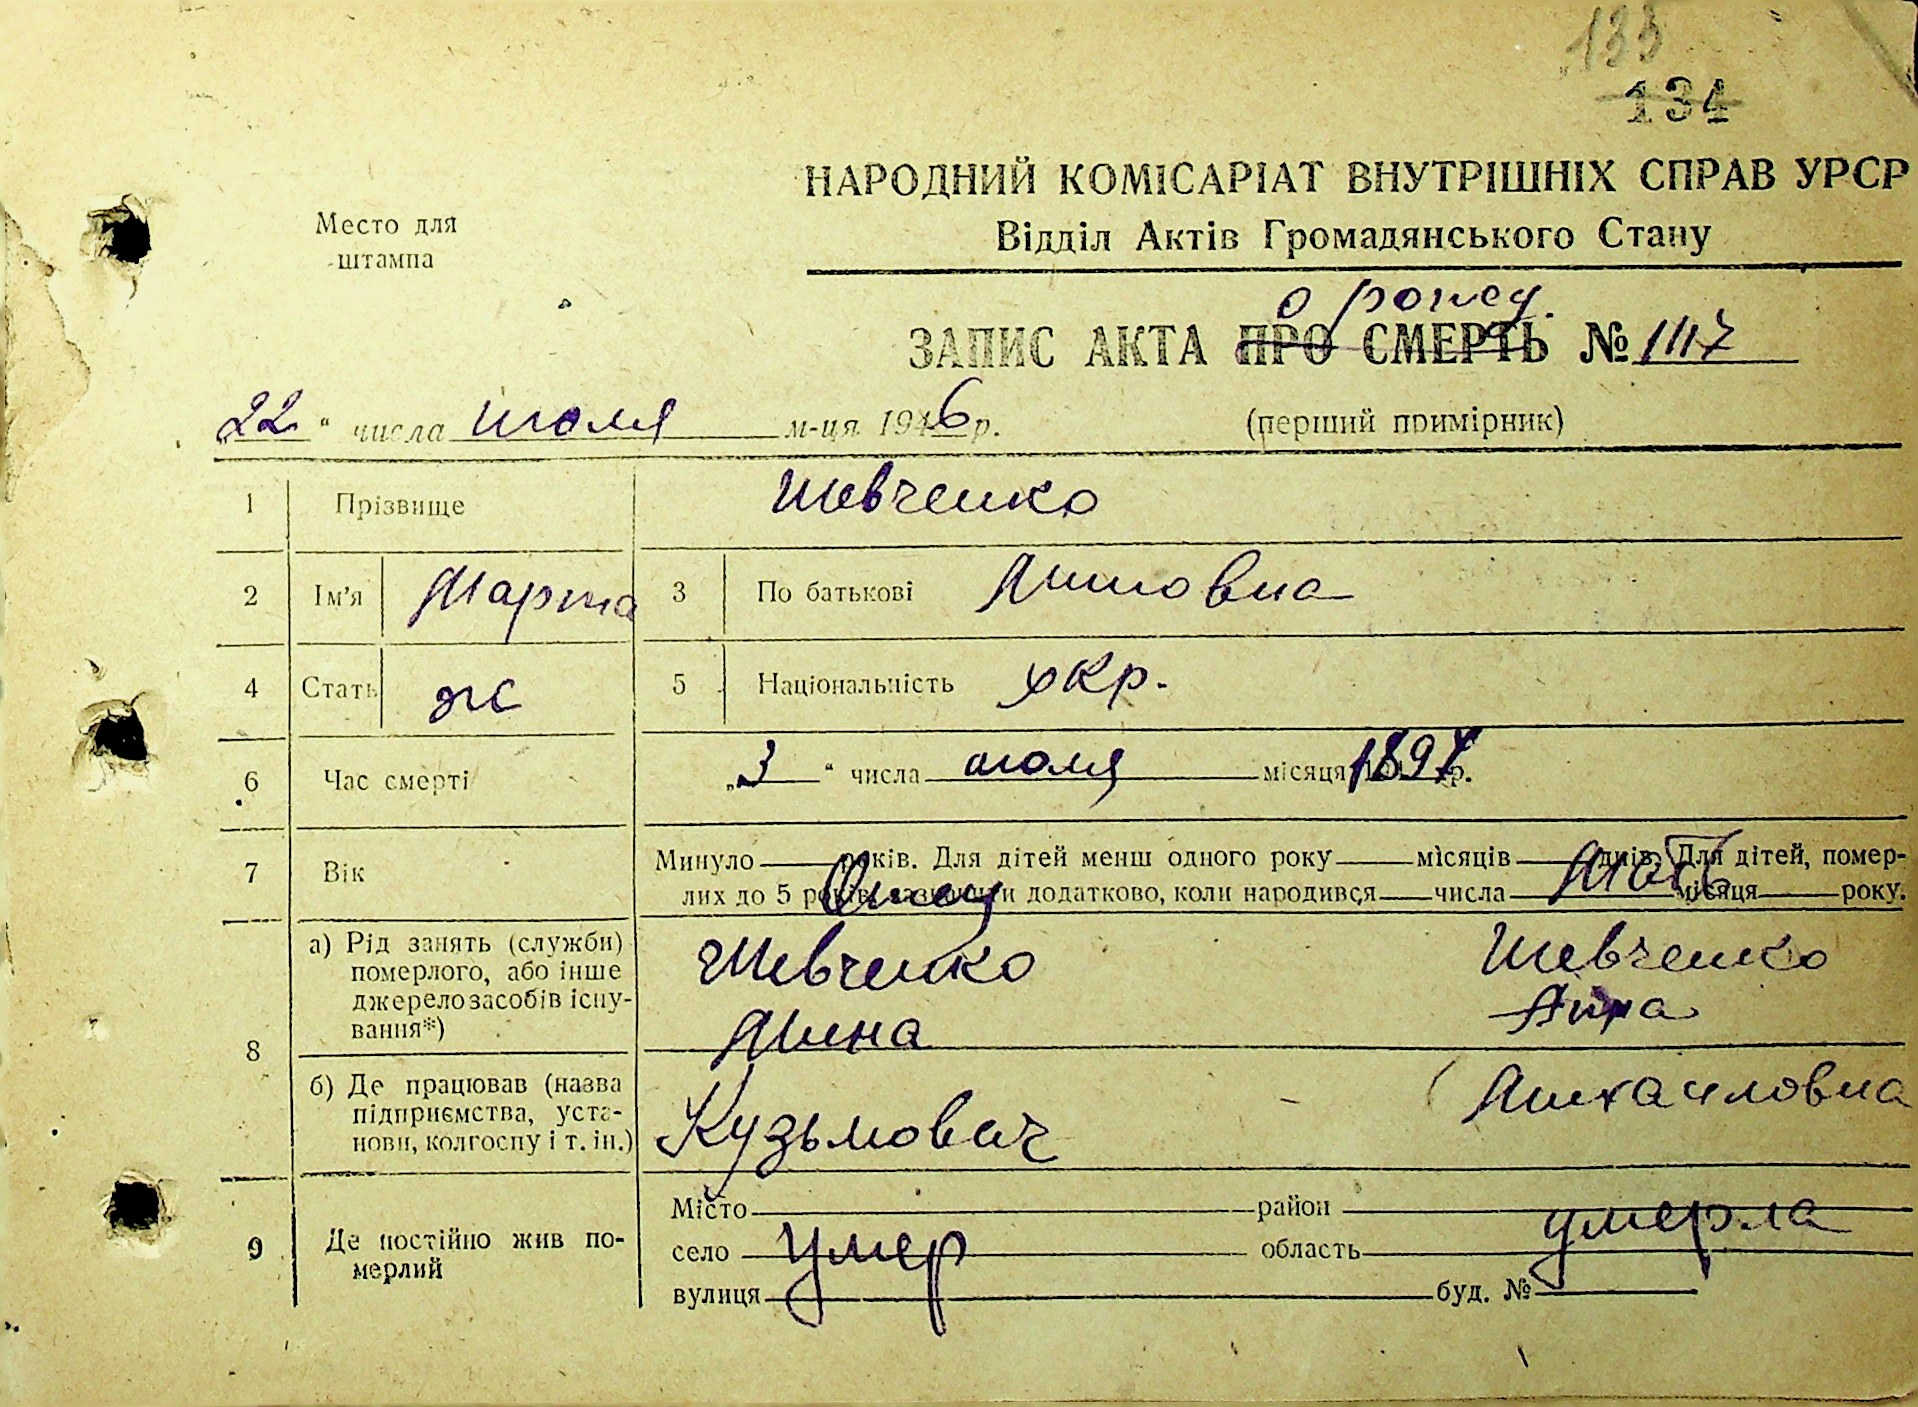 133
134
НАРОДНИЙ КОМІСАРІАТ ВНУТРІШНІХ СПРАВ УРСР
Место для штампа
Відділ Актів Громадянського Стану
о рожд.
ЗАПИС АКТА ПРО СМЕРТЬ № 1117
22 " числа июля м-ця 1946 р. (перший примірник)
1 Прізвище Шевченко
2 Ім'я Марта 3 По батькові Миновна
4 Стать ж 5 Національність укр.
6 Час смерті „3 " числа июля місяця 1897 р.
7 Вік Минуло років. Для дітей менш одного року місяців днів. Для дітей, помер-
лих до 5 років, зазначити додатково, коли народився числа місяця року.
Отец Мать
8 а) Рід занять (служби)
померлого, або інше
джерело засобів існу-
вання*)
Шевченко Шевченко
Мина Анна
б) Де працював (назва
підприємства, уста-
нови, колгоспу і т. ін.)
Кузьмович Михайловна
9 Де постійно жив по-
мерлий
Місто район
село умер область умерла
вулиця буд. №